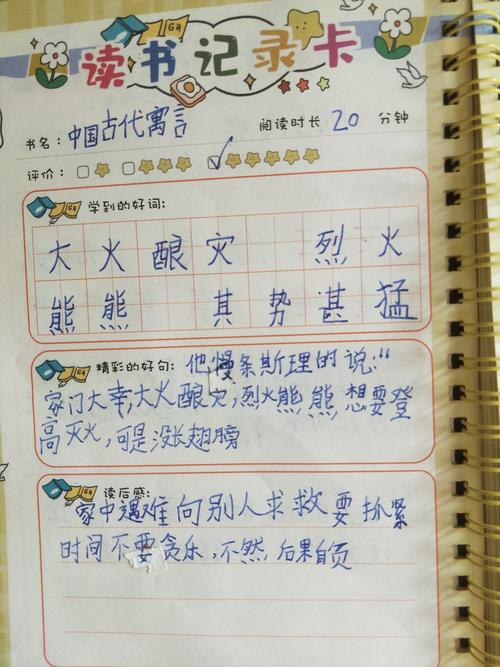 读书记录卡
书名：中国古代寓言 阅读时长 20 分钟
评价：
学到的好词：
大火酿灾 烈火
熊熊 其势甚猛
精彩的好句：他慢条斯理的说："
家门大幸，大火酿灾，烈火熊熊，想要登
高灭火，可是没张翅膀
读后感：
家中遇难向别人求救要抓紧
时间不要贪乐，不然后果自负